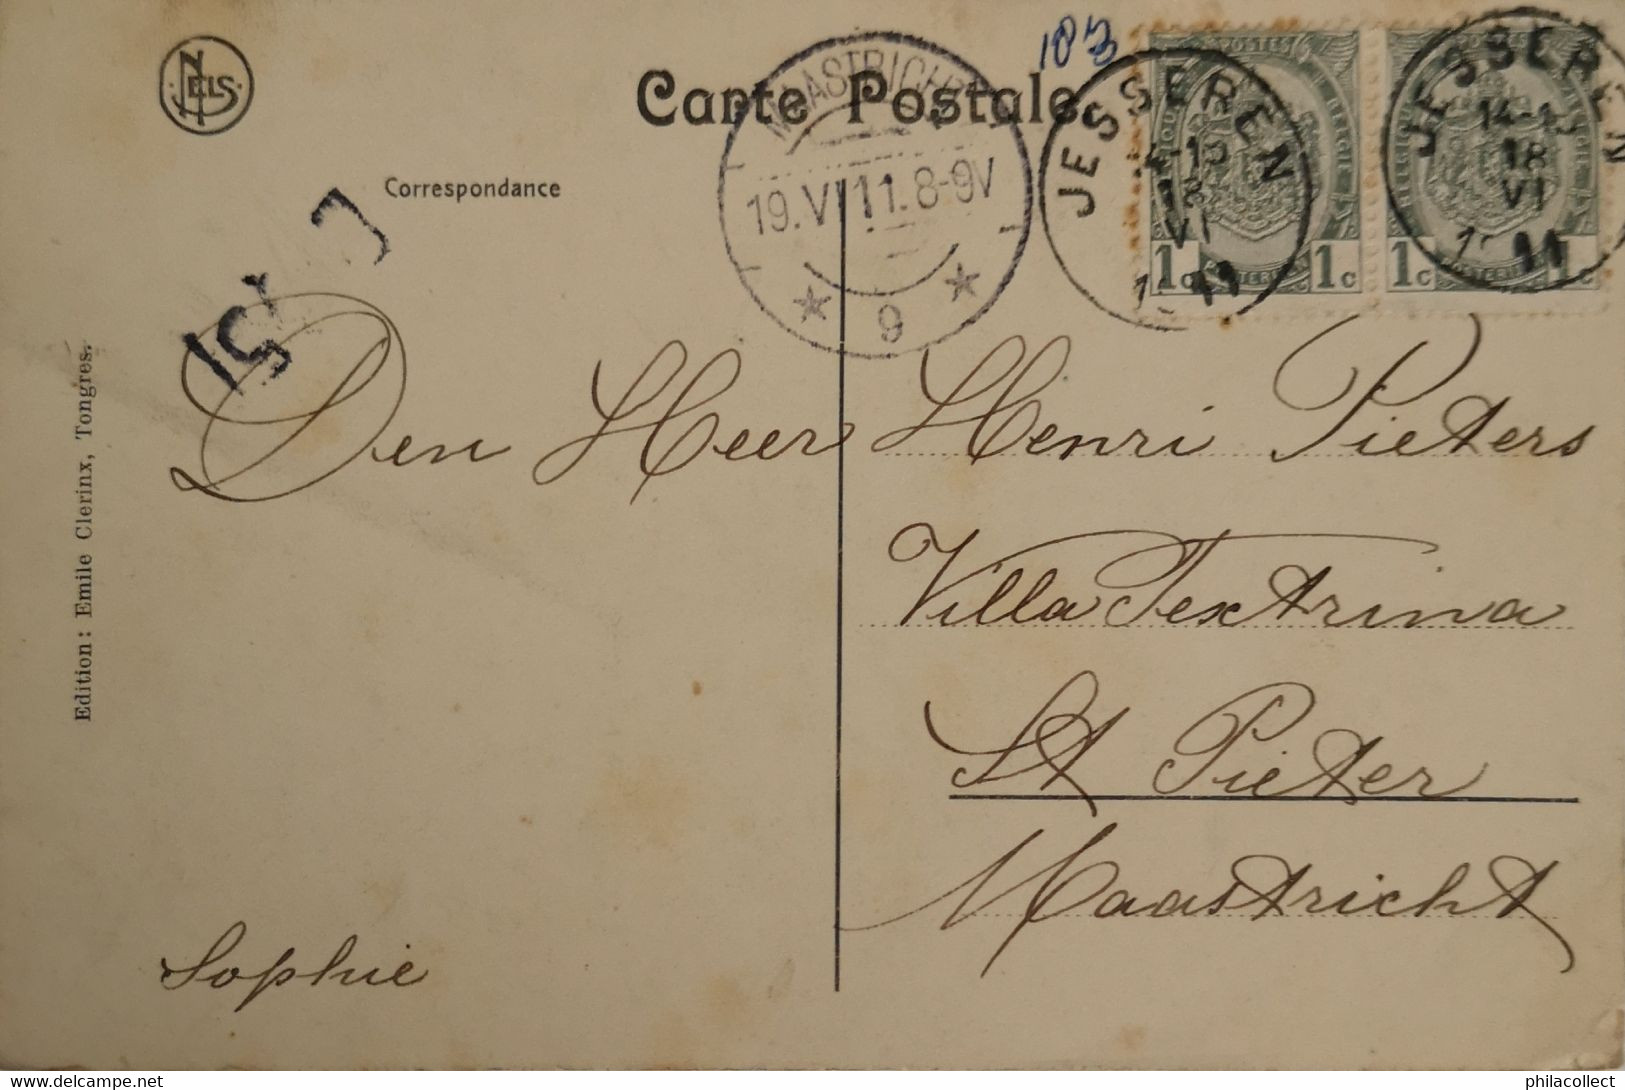 NELS
Carte Postale
183
Correspondance
MAASTRICHT
19.VI 11.8-9V
9
JESSEREN
18
VI
11
JESSEREN
14-15
18
VI
11
POSTES
BELGIQUE
BELGIË
POSTERIJEN
1c 1c
BELGIQUE
1c 1c
Den Heer Henri Pieters
Villa Textrina
St Pieter
Maastricht
Sophie
Edition: Emile Clerinx, Tongres.
philacollect
philacollect.com